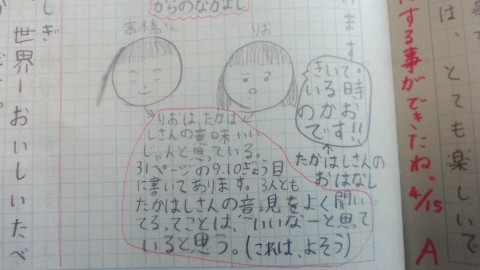 からのなかよし
高橋さん
りお
きいて。
いる時
のかお
です!!
たかはしさんの
おはなし
りおは、たかは
しさんの意味いい
し。んと思っている。
31ページの9.10ぎょう目
に書いてあります。3人とも
たかはしさんの意見をよく聞い
てるってことは、いいなーと思って
いると思う。(これは、よそう)
います
しぎ
世界一おいしいたべ
は、とても楽しいで
にする事ができたね。4/15
A